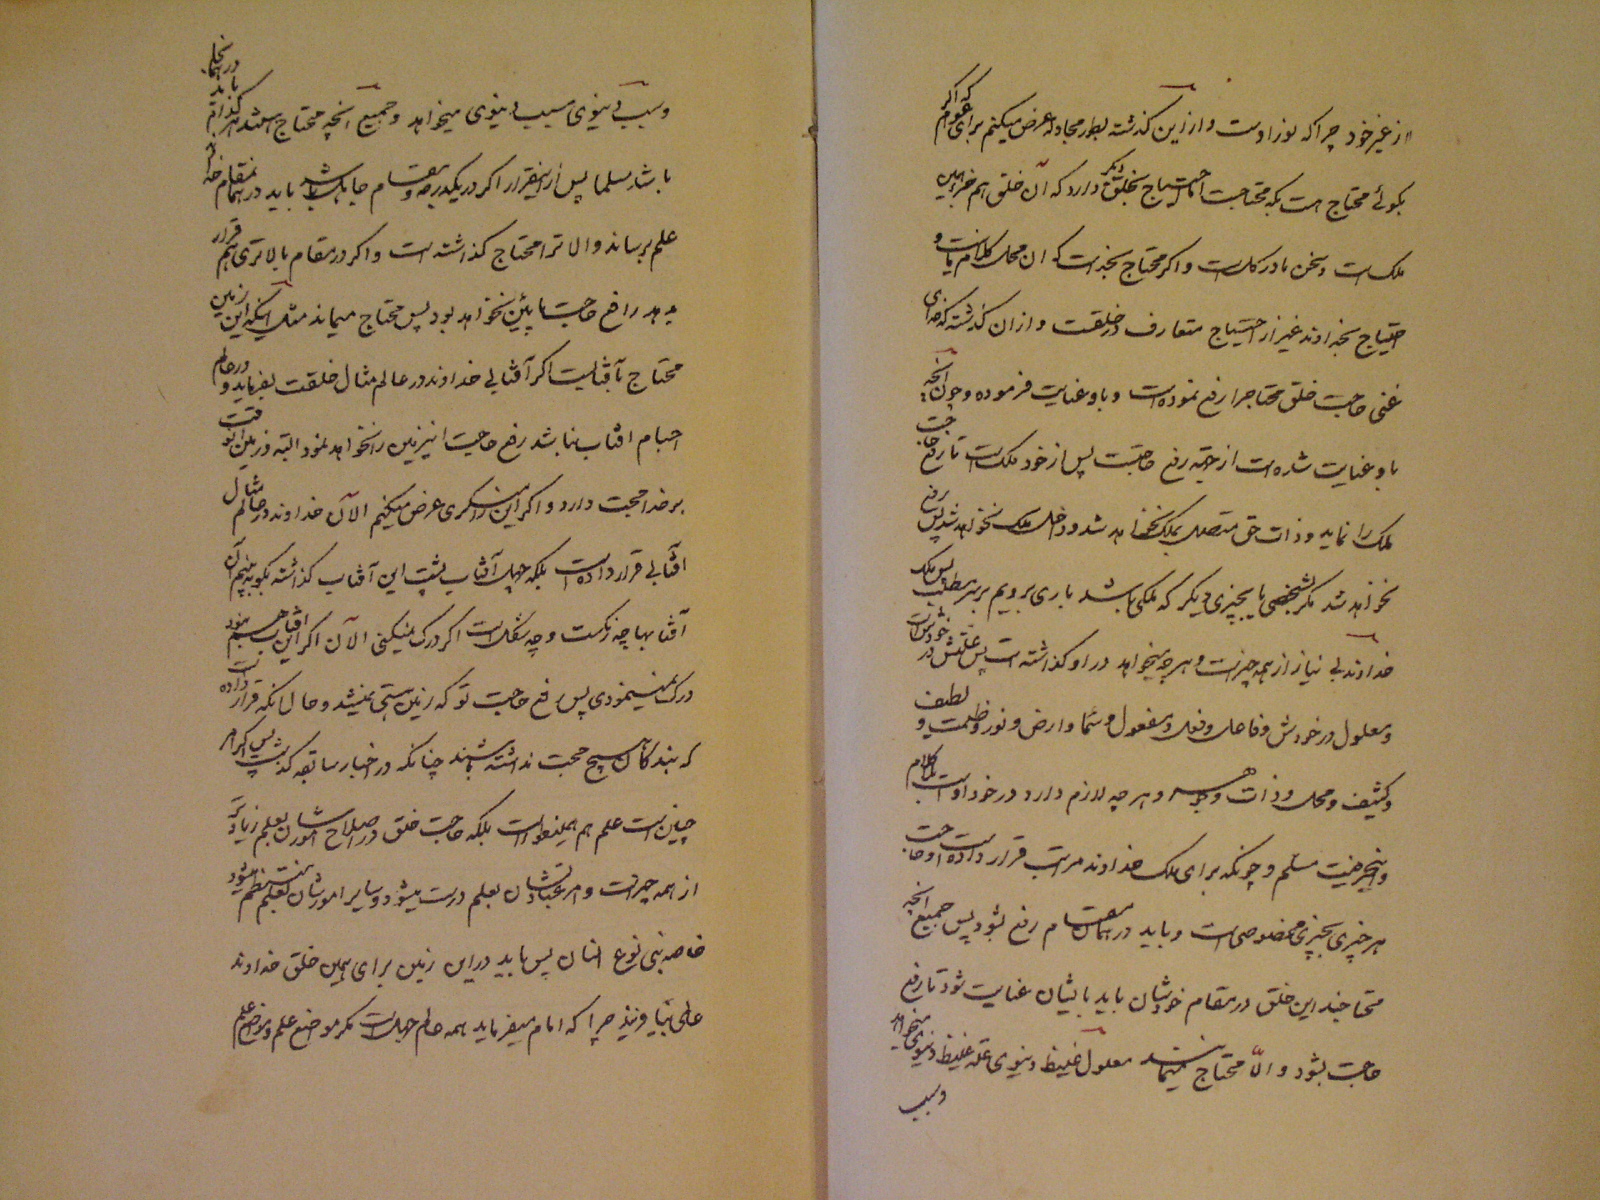 از غیر خود چرا که نور اوست و از این گذشته بطور مجادله عرض میکنم برای که اگر
بگوئی محتاج است بکه محتاجست احتیاج بخلق دیگر دارد که آن خلق هم جزو همین
ملک است و سخن ما در کل است و اگر محتاج بخداست که ان محل کلام ماست و
احتیاج بخداوند غیر از احتیاج متعارف در خلقت و از ان گذشته که خدای
غنی حاجت خلق محتاج را رفع نموده است و باو عنایت فرموده و چون آنچه
باو عنایت شده است از جهة رفع حاجتست پس از خود ملک است تا رفع حاجت
ملک را نماید و ذات حق متصل بملک نخواهد شد و داخل ملک نخواهد شد پس رفع
نخواهد شد مگر بشخصی یا بچیزی دیگر که ملکی باشد باری برویم بر سر مطلب پس ملک
خداوند بی نیاز از همه چیز است و هر چه میخواهد در او گذاشته است پس علتش در خودش است
و معلول در خودش و فاعل و فعل و مفعول و سما و ارض و نور و ظلمت و لطیف
و کثیف و محل و ذات و هر چه لازم دارد در خود اوست بلا کلام
و چونکه برای ملک خداوند مراتب قرار داده است و حاجت
هر چیزی بچیزی مخصوصی است و باید در همان مقام رفع بشود پس جمیع آنچه
محتاجند این خلق در مقام خودشان باید بایشان عنایت شود تا رفع
حاجت بشود و الّا محتاج میمانند معلول غلیظ دنیوی علة غلیظ دنیوی میخواهد
و سبب
و سبب دنیوی مسبب دنیوی میخواهد و جمیع آنچه محتاج هستند هر کدام باید در همانجا
باشد مسلما پس از اینقرار اگر در یکدرجه و مقام جاهل باشد باید در همان مقام خدا
علم برساند والا ترا محتاج گذاشته است و اگر در مقام بالاتری هم قرار
بدهد رافع حاجت پائین نخواهد بود پس محتاج میماند مثل اینکه این زمین
محتاج بآفتابست اگر آفتابی خداوند در عالم مثال خلقت بفرماید و در عالم
اجسام افتاب نباشد رفع حاجت این زمین را نخواهد نمود البته در این وقت
بر خدا حجت دارد و اگر این را منکری عرض میکنم الآن خداوند در عالم مثال
افتابی قرار داده است بلکه چهل آفتاب پشت این آفتاب گذاشته بگو ببینم آن
آفتابها چه رنگست و چه شکل است اگر درک میکنی الآن اگر این افتاب هم نبود
درک مینمودی پس رفع حاجت تو که زمین هستی نمیشد و حال آنکه قرار داده است
که بندگان هیچ حجت نداشته باشند چنانکه در اخبار سابقه گذشت پس اگر امر
چنین است علم هم همینطور است بلکه حاجت خلق در اصلاح امورشان بعلم زیادتر
از همه چیز است و امر عباداتشان بعلم درست میشود و سایر امورشان بعلم منتظم میشود
خاصه بنی نوع انسان پس باید در این زمین برای همین خلق خداوند
علمی بیافریند چرا که امام میفرماید همه عالم جهل است مگر مواضع علم و مواضع علم